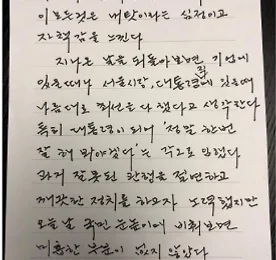 이 모든것은 내탓이라는 심정이고
자책감을 느낀다
지나온 날을 되돌아보면 기업에
있을때나 서울시장, 대통령직에 있을때
나름대로 최선을 다 했다고 생각한다
특히 대통령이 되어 "정말 한번
잘 해 봐야겠다"는 각오로 임했다
과거 잘못된 관행을 절연하고
깨끗한 정치를 하고자 노력했지만
오늘날 국민 눈높이에 비춰보면
미흡한 부분이 없지 않았다